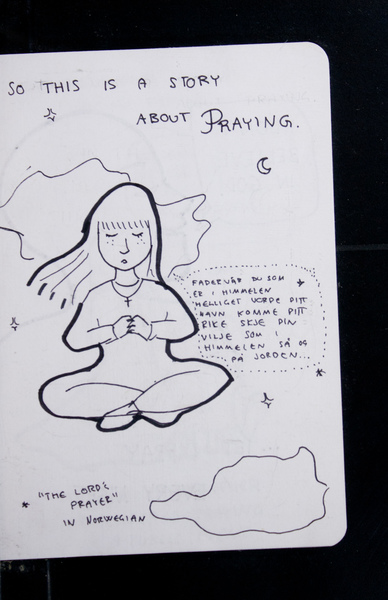 SO THIS IS A STORY
ABOUT PRAYING.
FADERVÅR DU SOM
ER I HIMMELEN
HELLIGET VORDE DITT
NAVN KOMME DITT
RIKE SKJE DIN
VILJE SOM I
HIMMELEN SÅ OG
PÅ JORDEN...
* "THE LORD'S
PRAYER"
IN NORWEGIAN